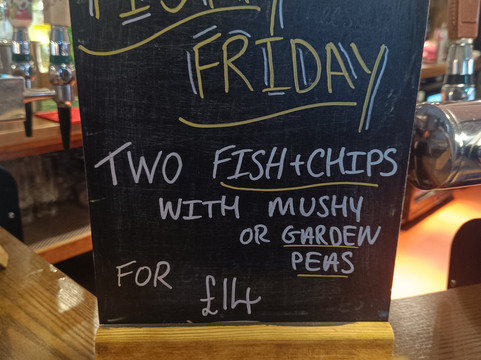 FRIDAY
TWO FISH+CHIPS
WITH MUSHY
OR GARDEN
PEAS
FOR £14